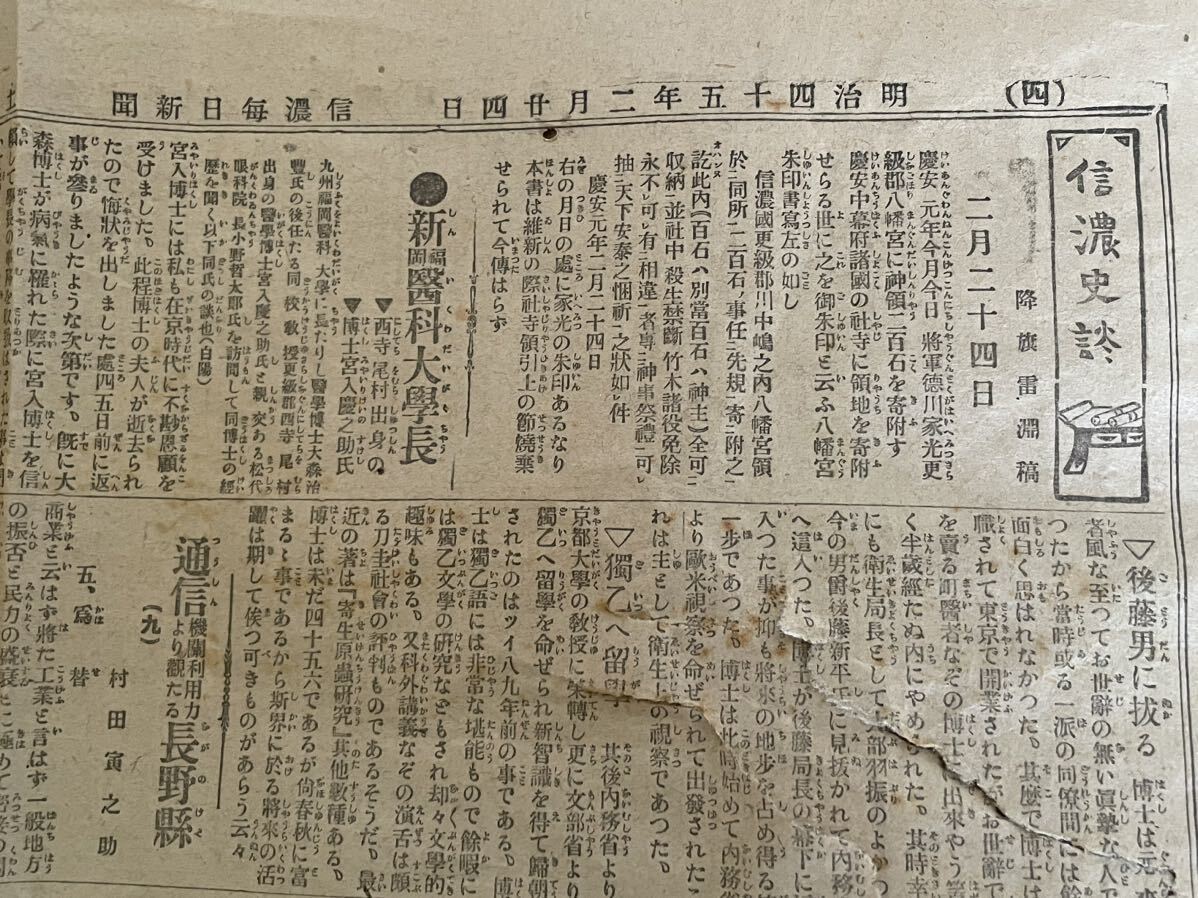 (四) 明治四十五年二月廿四日 信濃毎日新聞
信濃史談
降旗雷淵稿
二月二十四日
慶安元年今月今日將軍德川家光更
級郡八幡宮に神領二百石を寄附す
慶安中幕府諸國の社寺に領地を寄附
せらる世に之を御朱印と云ふ八幡宮
朱印書寫左の如し
信濃國更級郡川中嶋之內八幡宮領
於同所二百石事任先規寄附之
訖此內(百石ハ別當百石ハ神主)全可
收納並社中殺生禁斷竹木諸役免除
永不可有相違者專神事祭禮可
抽天下安泰之悃祈之狀如件
慶安元年二月二十四日
右の月日の處に家光の朱印あるなり
本書は維新の際社寺領引上の節燒棄
せられて今傳はらず
●新福岡醫科大學長
▼西寺尾村出身の
▼博士宮入慶之助氏
九州福岡醫科大學に長たりし醫學博士大森治
豐氏の後任たる同校敎授更級郡西寺尾村
出身の醫學博士宮入慶之助氏と親交ある松代
眼科院長小野哲太郞氏を訪問して同博士の經
歷を聞く以下同氏の談也(白陽)
宮入博士には私も在京時代に不尠恩顧を
受けました、此程博士の夫人が逝去られ
たので悔狀を出しました處四五日前に返
事が參りましたような次第です、旣に大
森博士が病氣に罹れた際に宮入博士を信
▽後藤男に拔る 博士は元來
者風な至つてお世辭の無い眞摯な人で
つたから當時或る一派の同僚間には餘
面白く思はれなかつた。其麽で博士は
職されて東京で開業されたがお世辭で
を賣る町醫者なぞの博士に出來やう筈
く半歲經たぬ內にやめられた。其時幸
にも衞生局長として大部羽振のよかつ
今の男爵後藤新平氏に見拔かれて內務
へ這入つた。博士が後藤局長の幕下に
入つた事が抑も將來の地步を占め得る
一步であつた。博士は此時始めて內務省
より歐米視察を命ぜられて出發されたこ
れは主として衞生上の視察であつた。
▽獨乙へ留學 其後內務省より
京都大學の敎授に榮轉し更に文部省より
獨乙へ留學を命ぜられ新智識を得て歸朝
されたのはツイ八九年前の事である。博
士は獨乙語には非常な堪能もので餘暇に
は獨乙文學の硏究などもされ却々文學的
趣味もある。又科外講義なぞの演舌は頗
る刀圭社會の評判ものであるそうだ、最
近の著は『寄生原蟲硏究』其他數種ある。
博士は未だ四十五六であるが尙春秋に富
まるゝ事であるから斯界に於る將來の活
躍は期して俟つ可きものがあらう云々
通信機關利用力より觀たる長野縣
(九)
村田寅之助
五、爲替
商業と云はず將た工業と言はず一般地方
の振否と民力の盛衰